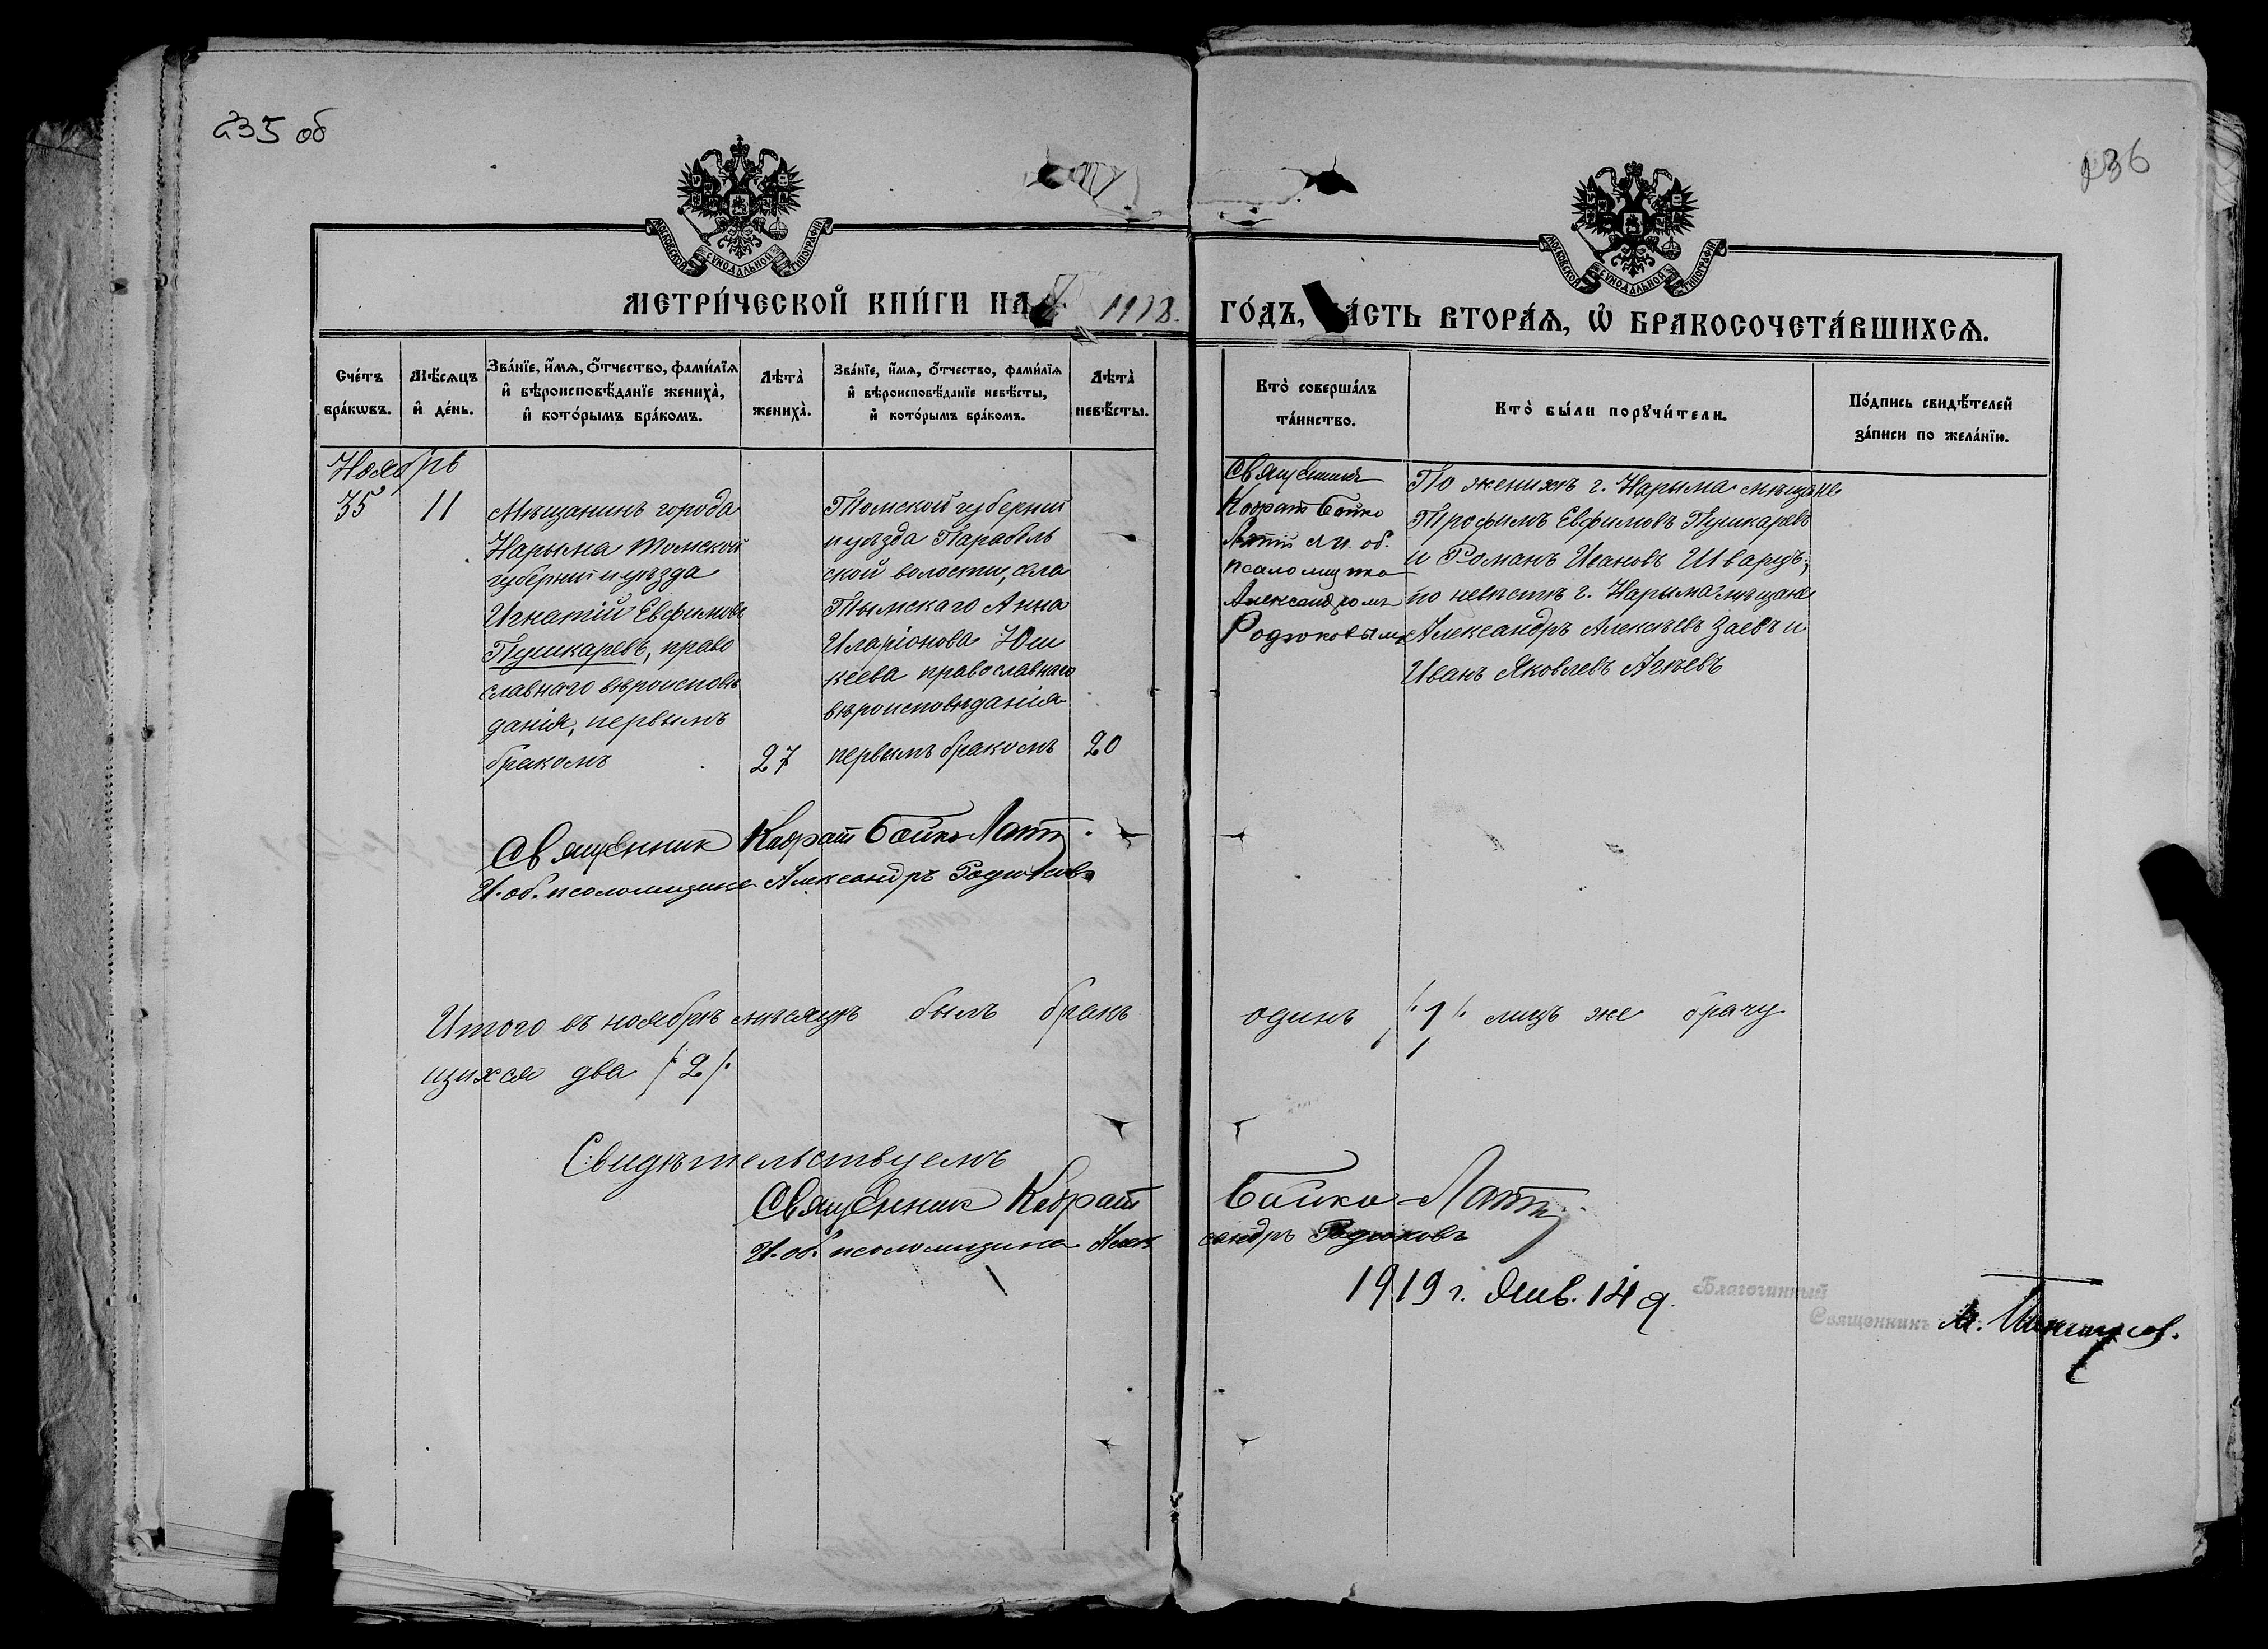 235 об
236
МОСКОВСКОЙ СУНОДАЛЬНОЙ ТИПОГРАФІИ
МОСКОВСКОЙ СУНОДАЛЬНОЙ ТИПОГРАФІИ
МЕТРИ́ЧЕСКОЙ КНИ́ГИ НА 1918.
ГО́ДЪ, ЧА́СТЬ ВТОРА́Ѧ, Ѽ БРАКОСОЧЕТА́ВШИХСѦ.
Сче́тъ бра́кѡвъ.
Мѣ́сяцъ и҆ де́нь.
Зва́нїе, и҆́мѧ, ѻ҆́тчество, фами́лїѧ и҆ вѣроисповѣ́данїе жениха̀, и҆ кото́рымъ бра́комъ.
Лѣта̀ жениха̀.
Зва́нїе, и҆́мѧ, ѻ҆́тчество, фами́лїѧ и҆ вѣроисповѣ́данїе невѣ́сты, и҆ кото́рымъ бра́комъ.
Лѣта̀ невѣ́сты.
Кто̀ соверша́лъ та́инство.
Кто̀ бы́ли порꙋчи́тели.
По́дпись свидѣ́телей за́писи по жела́нїю.
Ноябрь
35
11
Мѣщанинъ города
Нарыма Томской
губерніи и уѣзда
Игнатій Евфимовъ
Пушкаревъ, право
славнаго вѣроисповѣ
данія, первымъ
бракомъ
27
Томской губерніи
и уѣзда Парабель
ской волости, села
Тымскаго Анна
Иларіонова Юш
кеева православнаго
вѣроисповѣданія
первымъ бракомъ
20
Священникъ
Кодрат Бойко
Латті и. об.
псаломщика
Александромъ
Родюковымъ
По женихѣ г. Нарыма мѣщане
Трофимъ Евфимовъ Пушкаревъ
и Романъ Ивановъ Шварцъ;
по невѣстѣ г. Нарыма мѣщане
Александръ Алексѣевъ Заевъ и
Иванъ Яковлевъ Агѣевъ
Священник Кодрат Бойко Латті
И. об. псаломщика Александръ Родюковъ
Итого въ ноябрѣ мѣсяцѣ былъ бракъ одинъ /:1:/ лицъ же брачу
щихся два /:2:/
Свидѣтельствуемъ
Священник Кодрат Бойко-Латті
И. об. псаломщика Александръ Родюковъ
1919 г. Янв. 14 д.
Благочинный
Священникъ М.